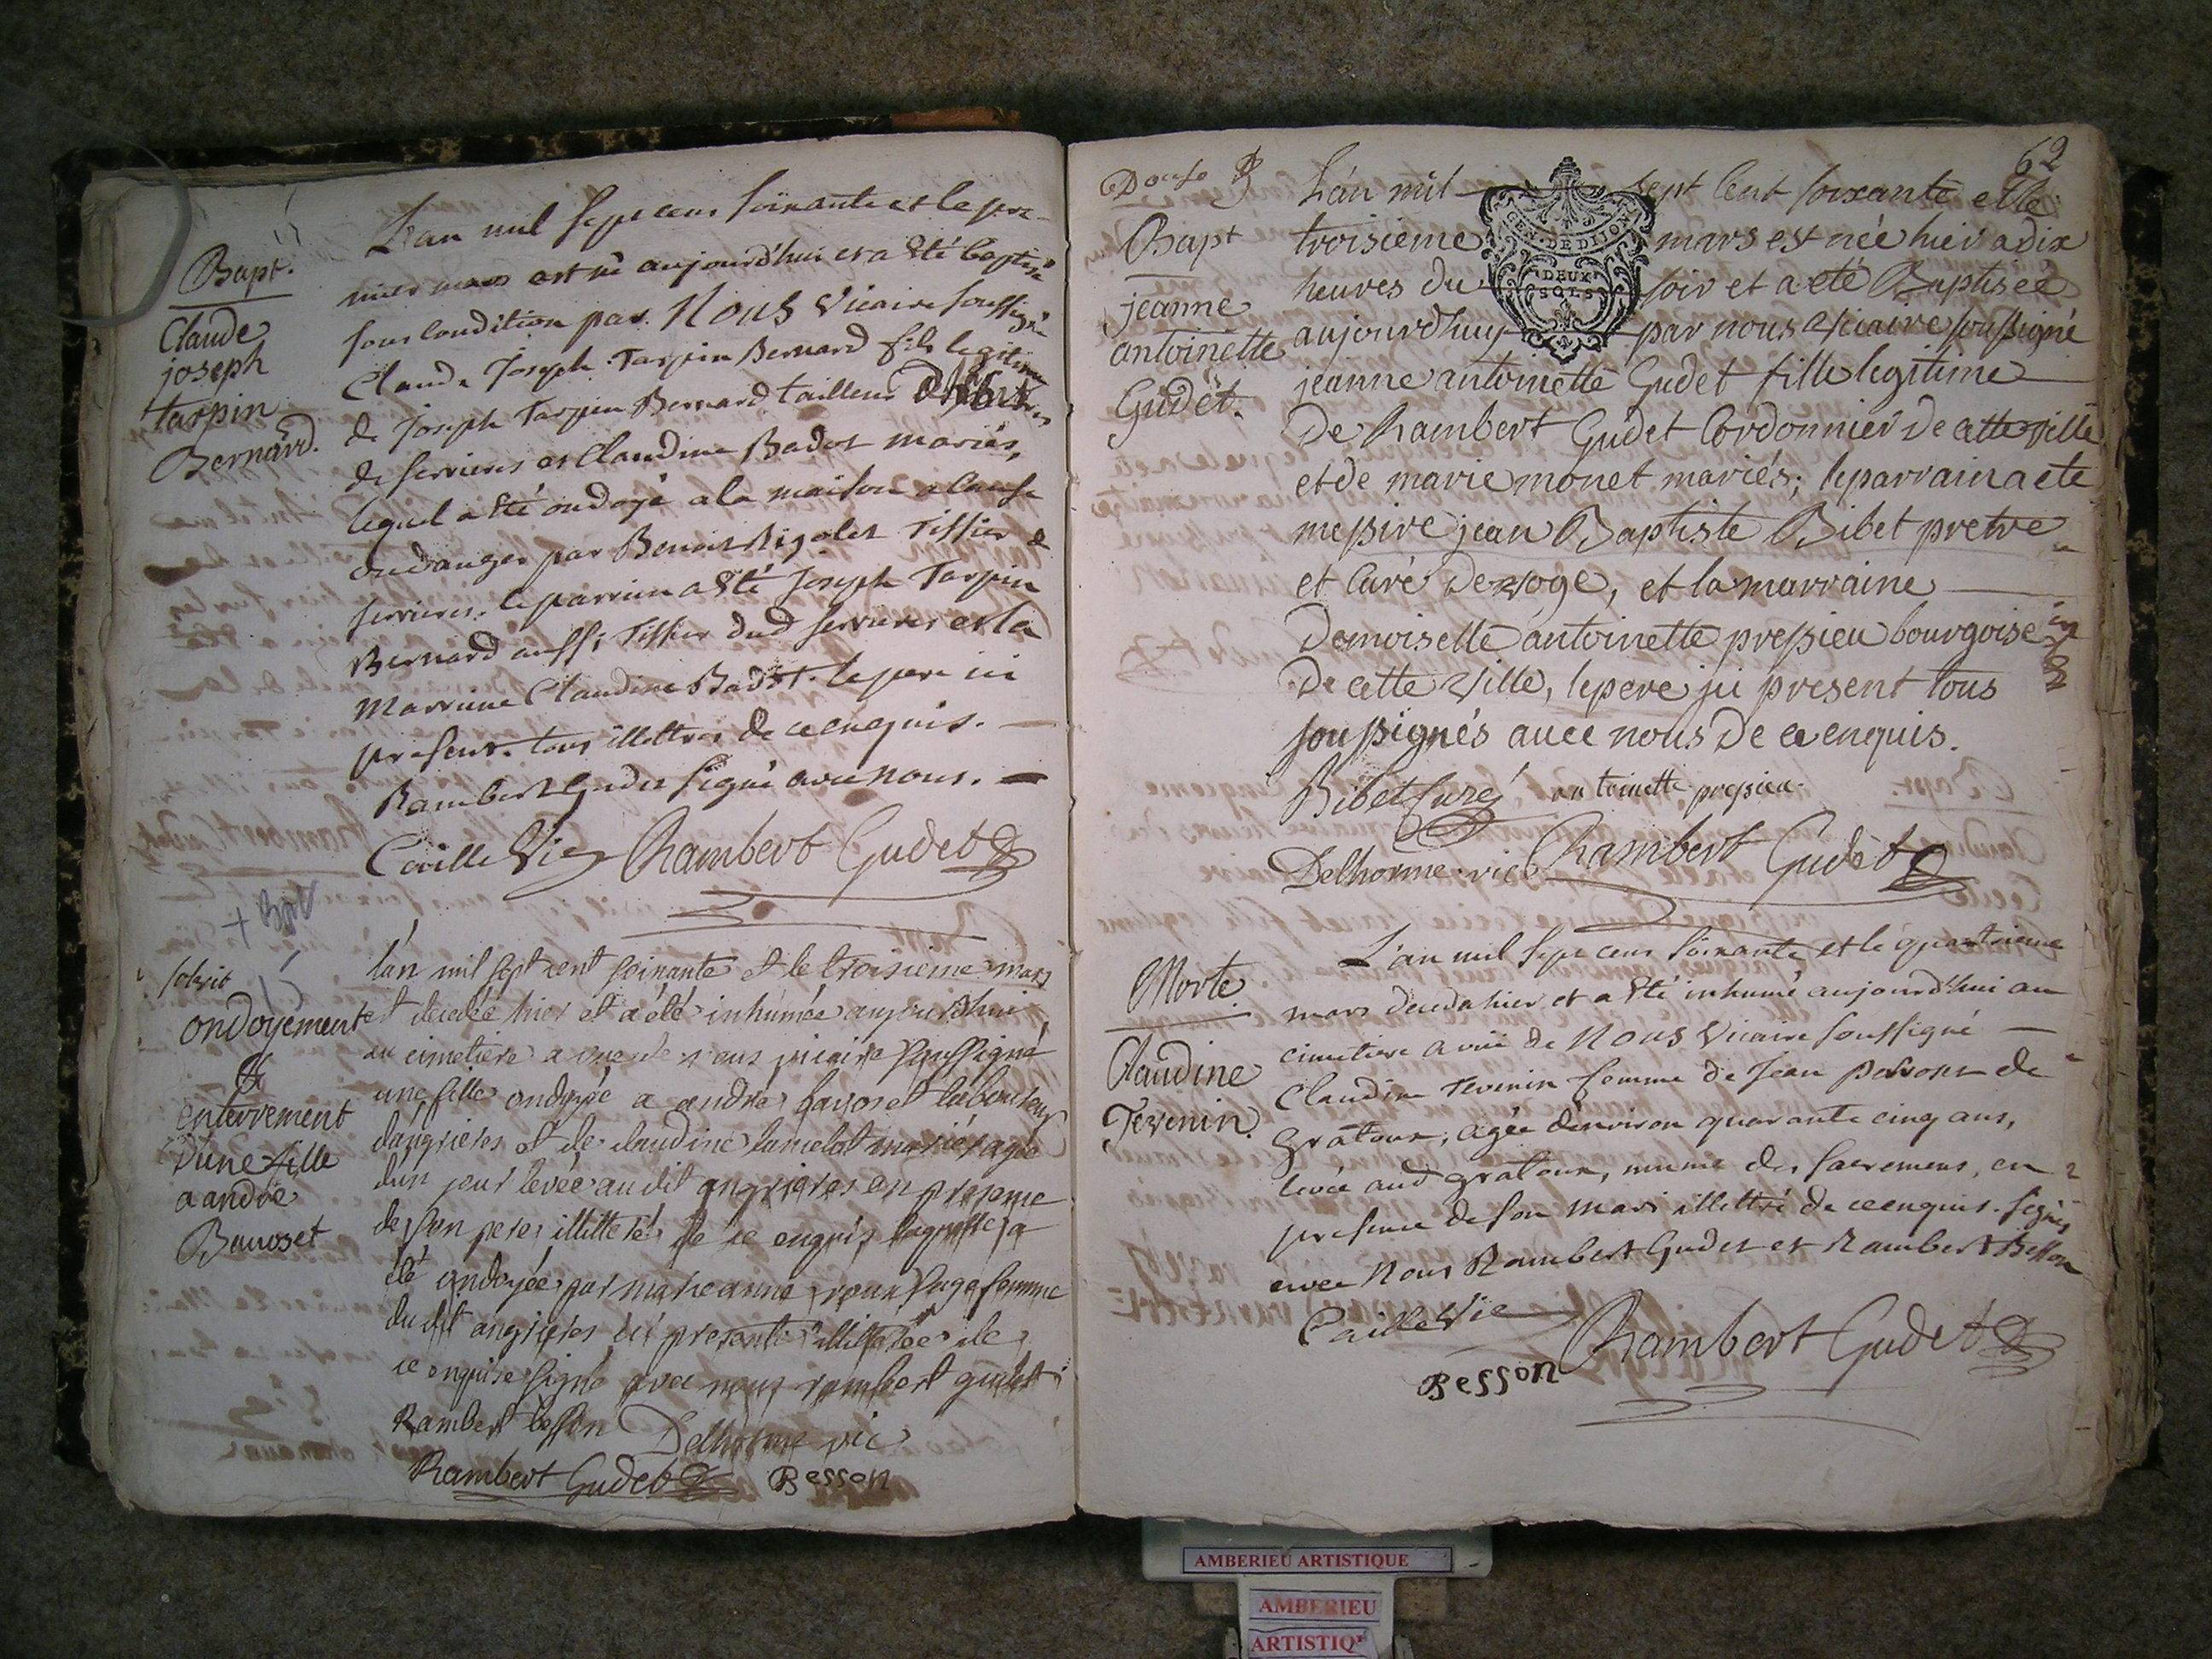 Bapt.
Claude
joseph
tarpin
Bernard.
L'an mil sept cens soixante et le pre-
mier mars est né aujourd'hui et a été baptisé
sous condition par Nous Vicaire soussigné
Claude Joseph Tarpin Bernard fils legitime
de Joseph Tarpin Bernard tailleur
de serrieres et Claudine Badot mariés,
lequel a été ondoyé a la maison a cause
du danger par Benoit Rigolet Tissier de
serrieres. le parrein a été Joseph Tarpin
Bernard aussi Tissier dud serrieres et la
Marreine Claudine Badot. le pere ici
present. tous illettrés de ce enquis.
Rambert Gudet signé avec nous.
Caille Vic Rambert Gudet
ondoyement
et
enterrement
d'une fille
a andré
Bavoset
l'an mil sept cent soixante et le troisieme mars
est decedée hier et a été inhumée aujourdhui
au cimetiere a vue de nous vicaire soussigné
une fille ondoyée a andré bavoset laboureur
d'angrieres et de claudine lancelot mariés agée
d'un jour levée audit angrieres en presence
de son pere illitteré de ce enquis laquelle a
été ondoyée par marie anne roux sage femme
dudit angrieres ici presente illitterée de
ce enquise signé avec nous rambert gudet
Rambert besson Delhorme vic
Rambert Gudet Besson
62
Douze
Bapt
jeanne
antoinette
Gudet.
L'an mil sept cent soixante et le
troisieme mars est née hier a dix
heures du soir et a eté Baptisée
aujourdhuy par nous vicaire soussigné
GEN. DE DIJON
DEUX
SOLS
jeanne antoinette Gudet fille legitime
de Rambert Gudet Cordonnier de cette ville
et de marie monet mariés; le parrain a ete
messire jean Baptiste Bibet pretre
et curé de voge, et la marraine
demoiselle antoinette pressieu bourgoise
de cette ville, le pere ici present tous
soussignés avec nous de ce enquis.
Bibet Curé antoinette pressieu
Delhorme vic Rambert Gudet
Morte
Claudine
Tevenin.
L'an mil sept cens soixante et le quatrieme
mars deceda hier et a été inhumé aujourd'hui au
cimetiere a vue de Nous Vicaire soussigné
Claudine Tevenin femme de Jean de
gratoux, agée d'environ quarante cinq ans,
levée aud gratoux, munie des sacremens, en
presence de son mari illettré de ce enquis. signés
avec Nous Rambert Gudet et Rambert Besson
Caille Vic
Besson Rambert Gudet
AMBERIEU ARTISTIQUE
AMBERIEU
ARTISTIQ